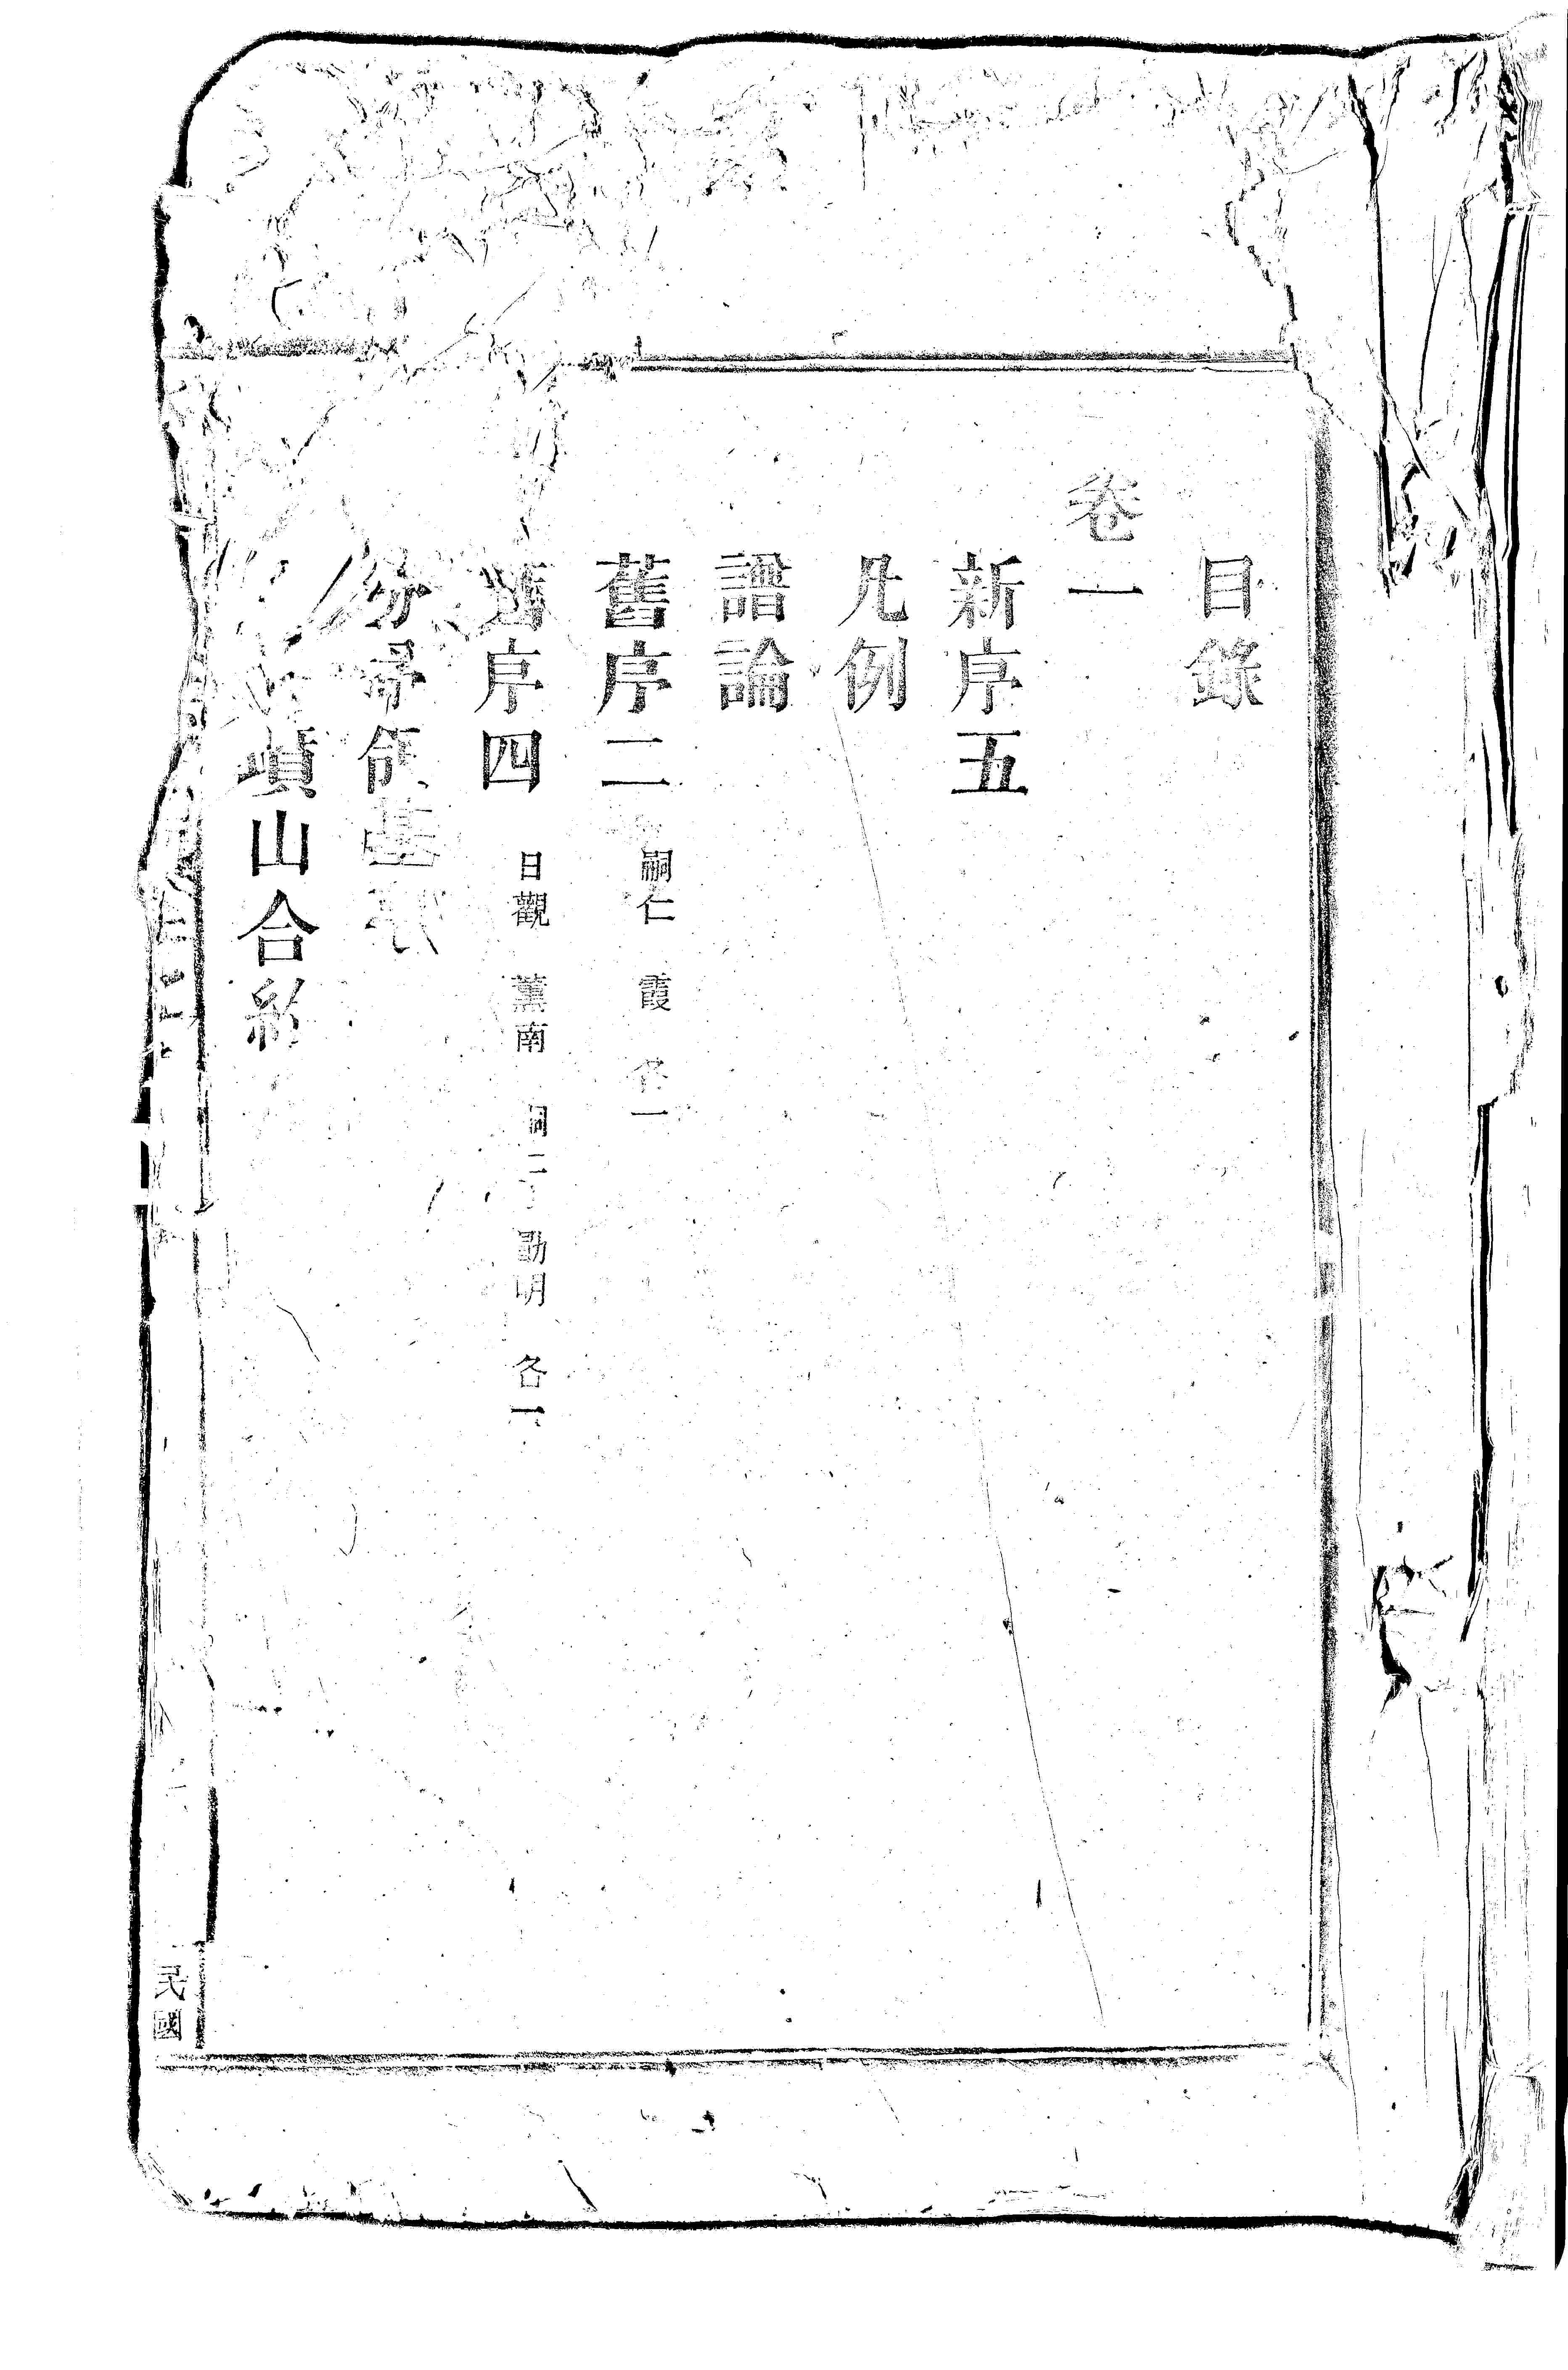 目錄
卷一
新序五
凡例
譜論
舊序二 嗣仁 霞 各一
舊序四 日觀 薰南 勛明 各一
山合約
民國